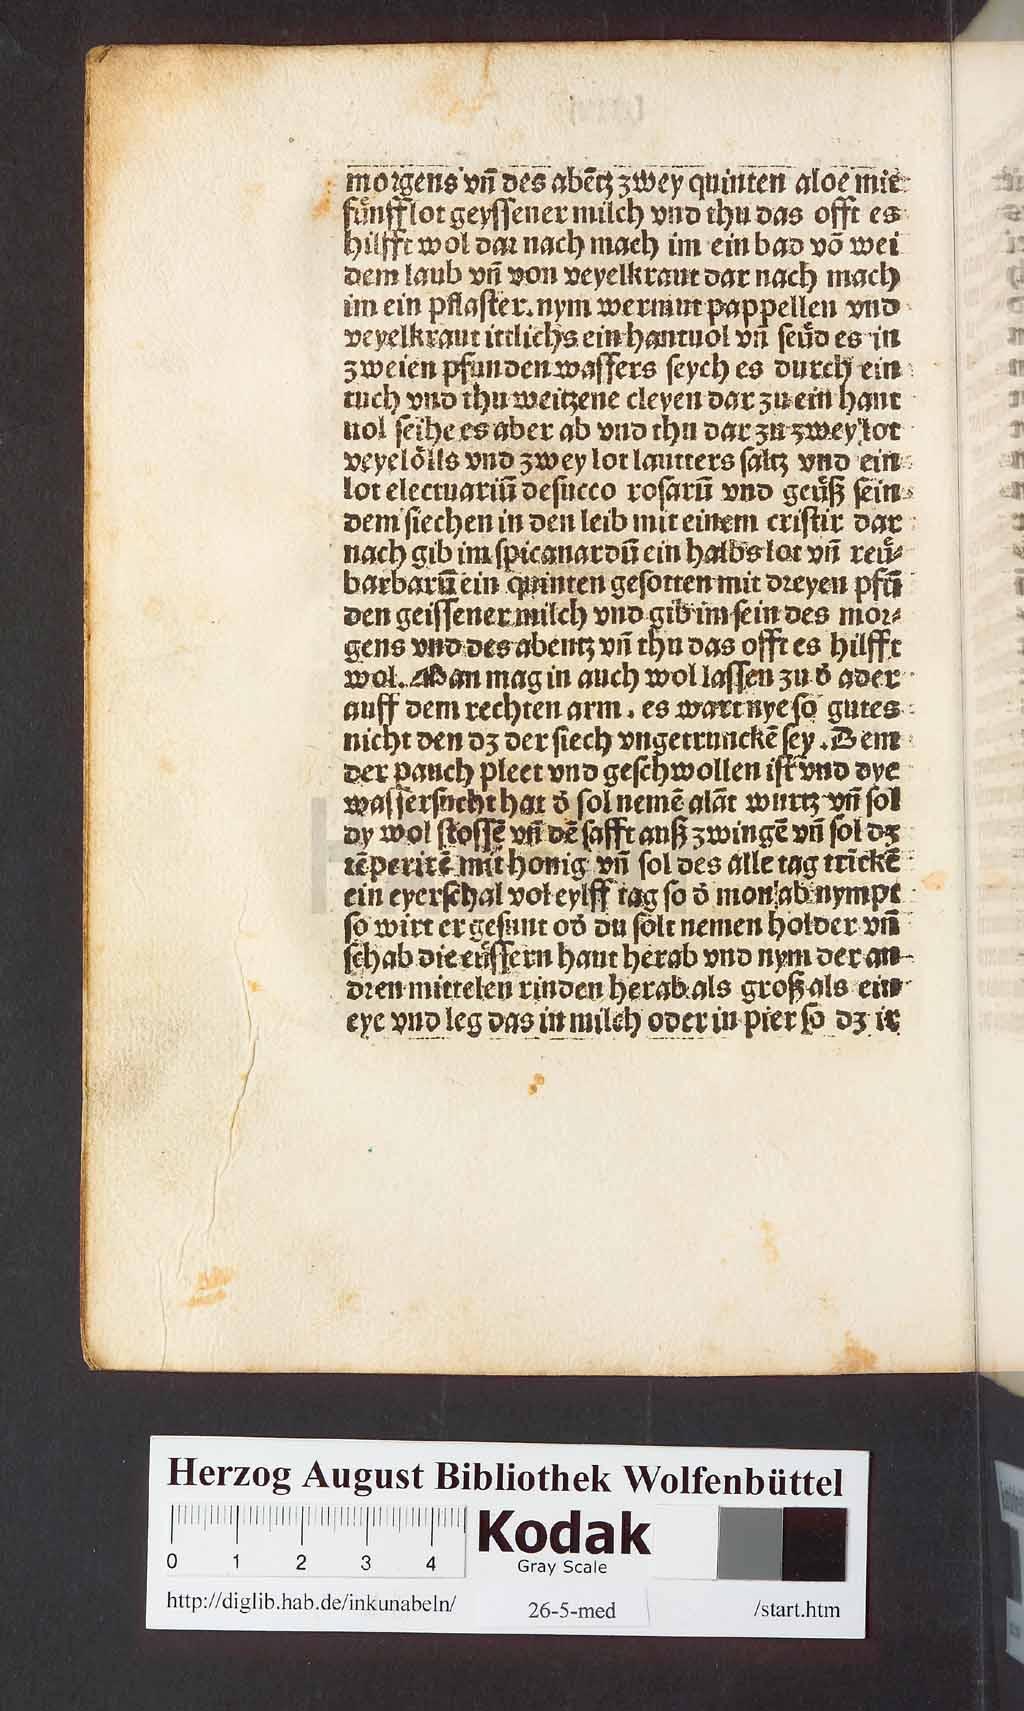 morgens vñ des abẽtz zwey quinten aloe mit
fúnff lot geyssener milch vnd thu das offt es
hilfft wol dar nach mach im ein bad võ wei
dem laub vñ von veyelkraut dar nach mach
im ein pflaster. nym wermut pappellen vnd
veyelkraut ittlichs ein hantuol vñ seúd es in
zweien pfunden wassers seych es durch ein
tuch vnd thu weitzene cleyen dar zu ein hant
uol seihe es aber ab vnd thu dar zu zwey lot
veyelölls vnd zwey lot lautters saltz vnd ein
lot electuariũ desucco rosarũ vnd geúß sein
dem siechen in den leib mit einem cristir dar
nach gib im spicanardũ ein halbs lot vñ reú⸗
barbarũ ein quinten gesotten mit dreyen pfũ
den geissener milch vnd gib im sein des mor⸗
gens vnd des abentz vñ thu das offt es hilfft
wol. Man mag in auch wol lassen zu d̕ ader
auff dem rechten arm. es wart nye so gutes
nicht den dz der siech vngetrunckẽ sey. Dem
der pauch pleet vnd geschwollen ist vnd dye
wassersucht hat d̕ sol nemẽ alãt wurtz vñ sol
dy wol stossẽ vñ dẽ safft auß zwingẽ vñ sol dz
tẽperirẽ mit honig vñ sol des alle tag trĩckẽ
ein eyerschal vol eylff tag so d̕ mon ab nympt
so wirt er gesunt od̕ du solt nemen holder vñ
schab die eússern haut herab vnd nym der an
dren mittelen rinden herab als groß als ein
eye vnd leg das in milch oder in pier so dz ir
Herzog August Bibliothek Wolfenbüttel
0 1 2 3 4
Kodak
Gray Scale
http://diglib.hab.de/inkunabeln/ 26-5-med /start.htm